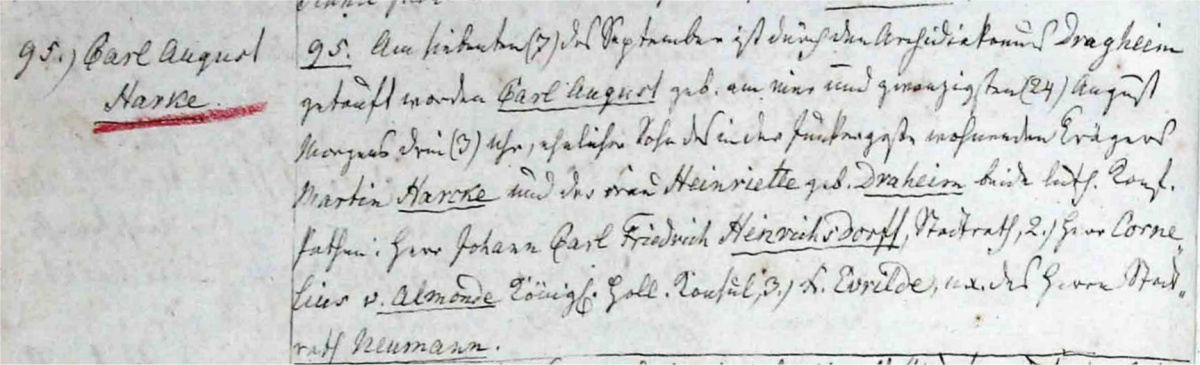 95.) Carl August
Harke.
95. Am siebenten (7) des September ist durch den Archidiakonus Dragheim
getauft worden Carl August geb. am vier und zwanzigsten (24) August
Morgens drei (3) Uhr, ehelicher Sohn des in der wohnenden Trägers
Martin Harcke und der Frau Heinriette geb. Draheim beide luth. Konf.
Pathen: Herr Johann Carl Friedrich Heinrichsdorff, Stadtrath, 2.) Herr Corne„
lius v. Almonde Königl. Holl. Konsul, 3.) F. Evrilde, ux. des Herrn Stadt„
rath Neumann.